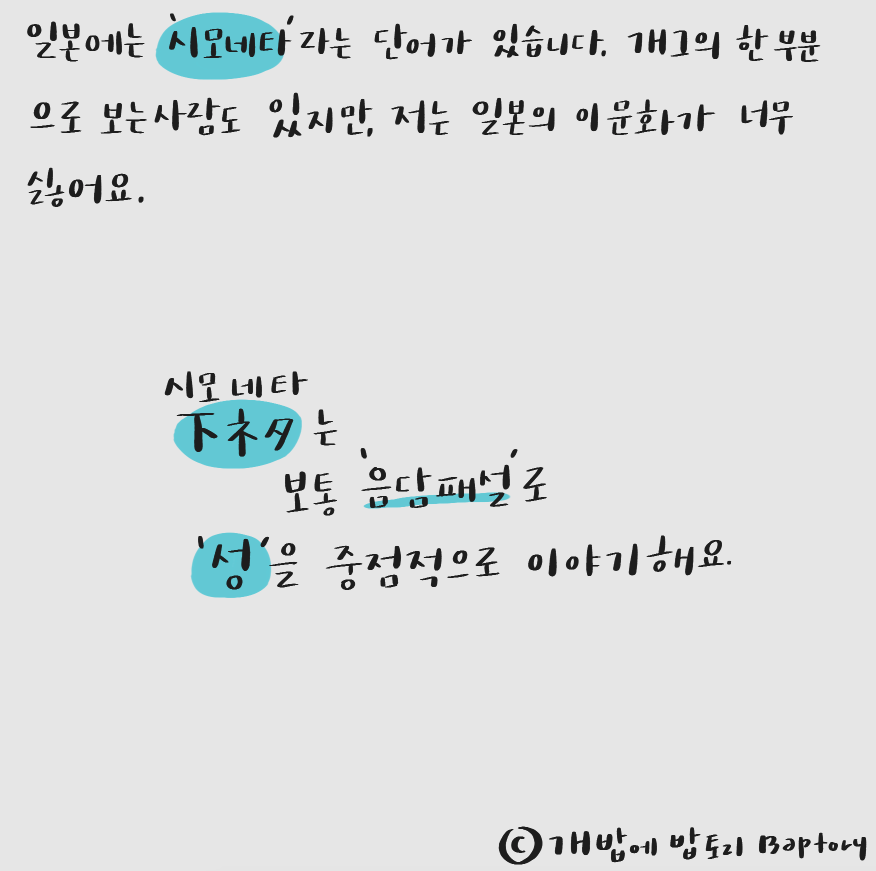 일본에는 '시모네타'라는 단어가 있습니다. 개그의 한 부분
으로 보는 사람도 있지만, 저는 일본의 이 문화가 너무
싫어요.
시모네타
下ネタ는
보통 '음담패설'로
'성'을 중점적으로 이야기해요.
© 개밥에 밥토리 Baptory